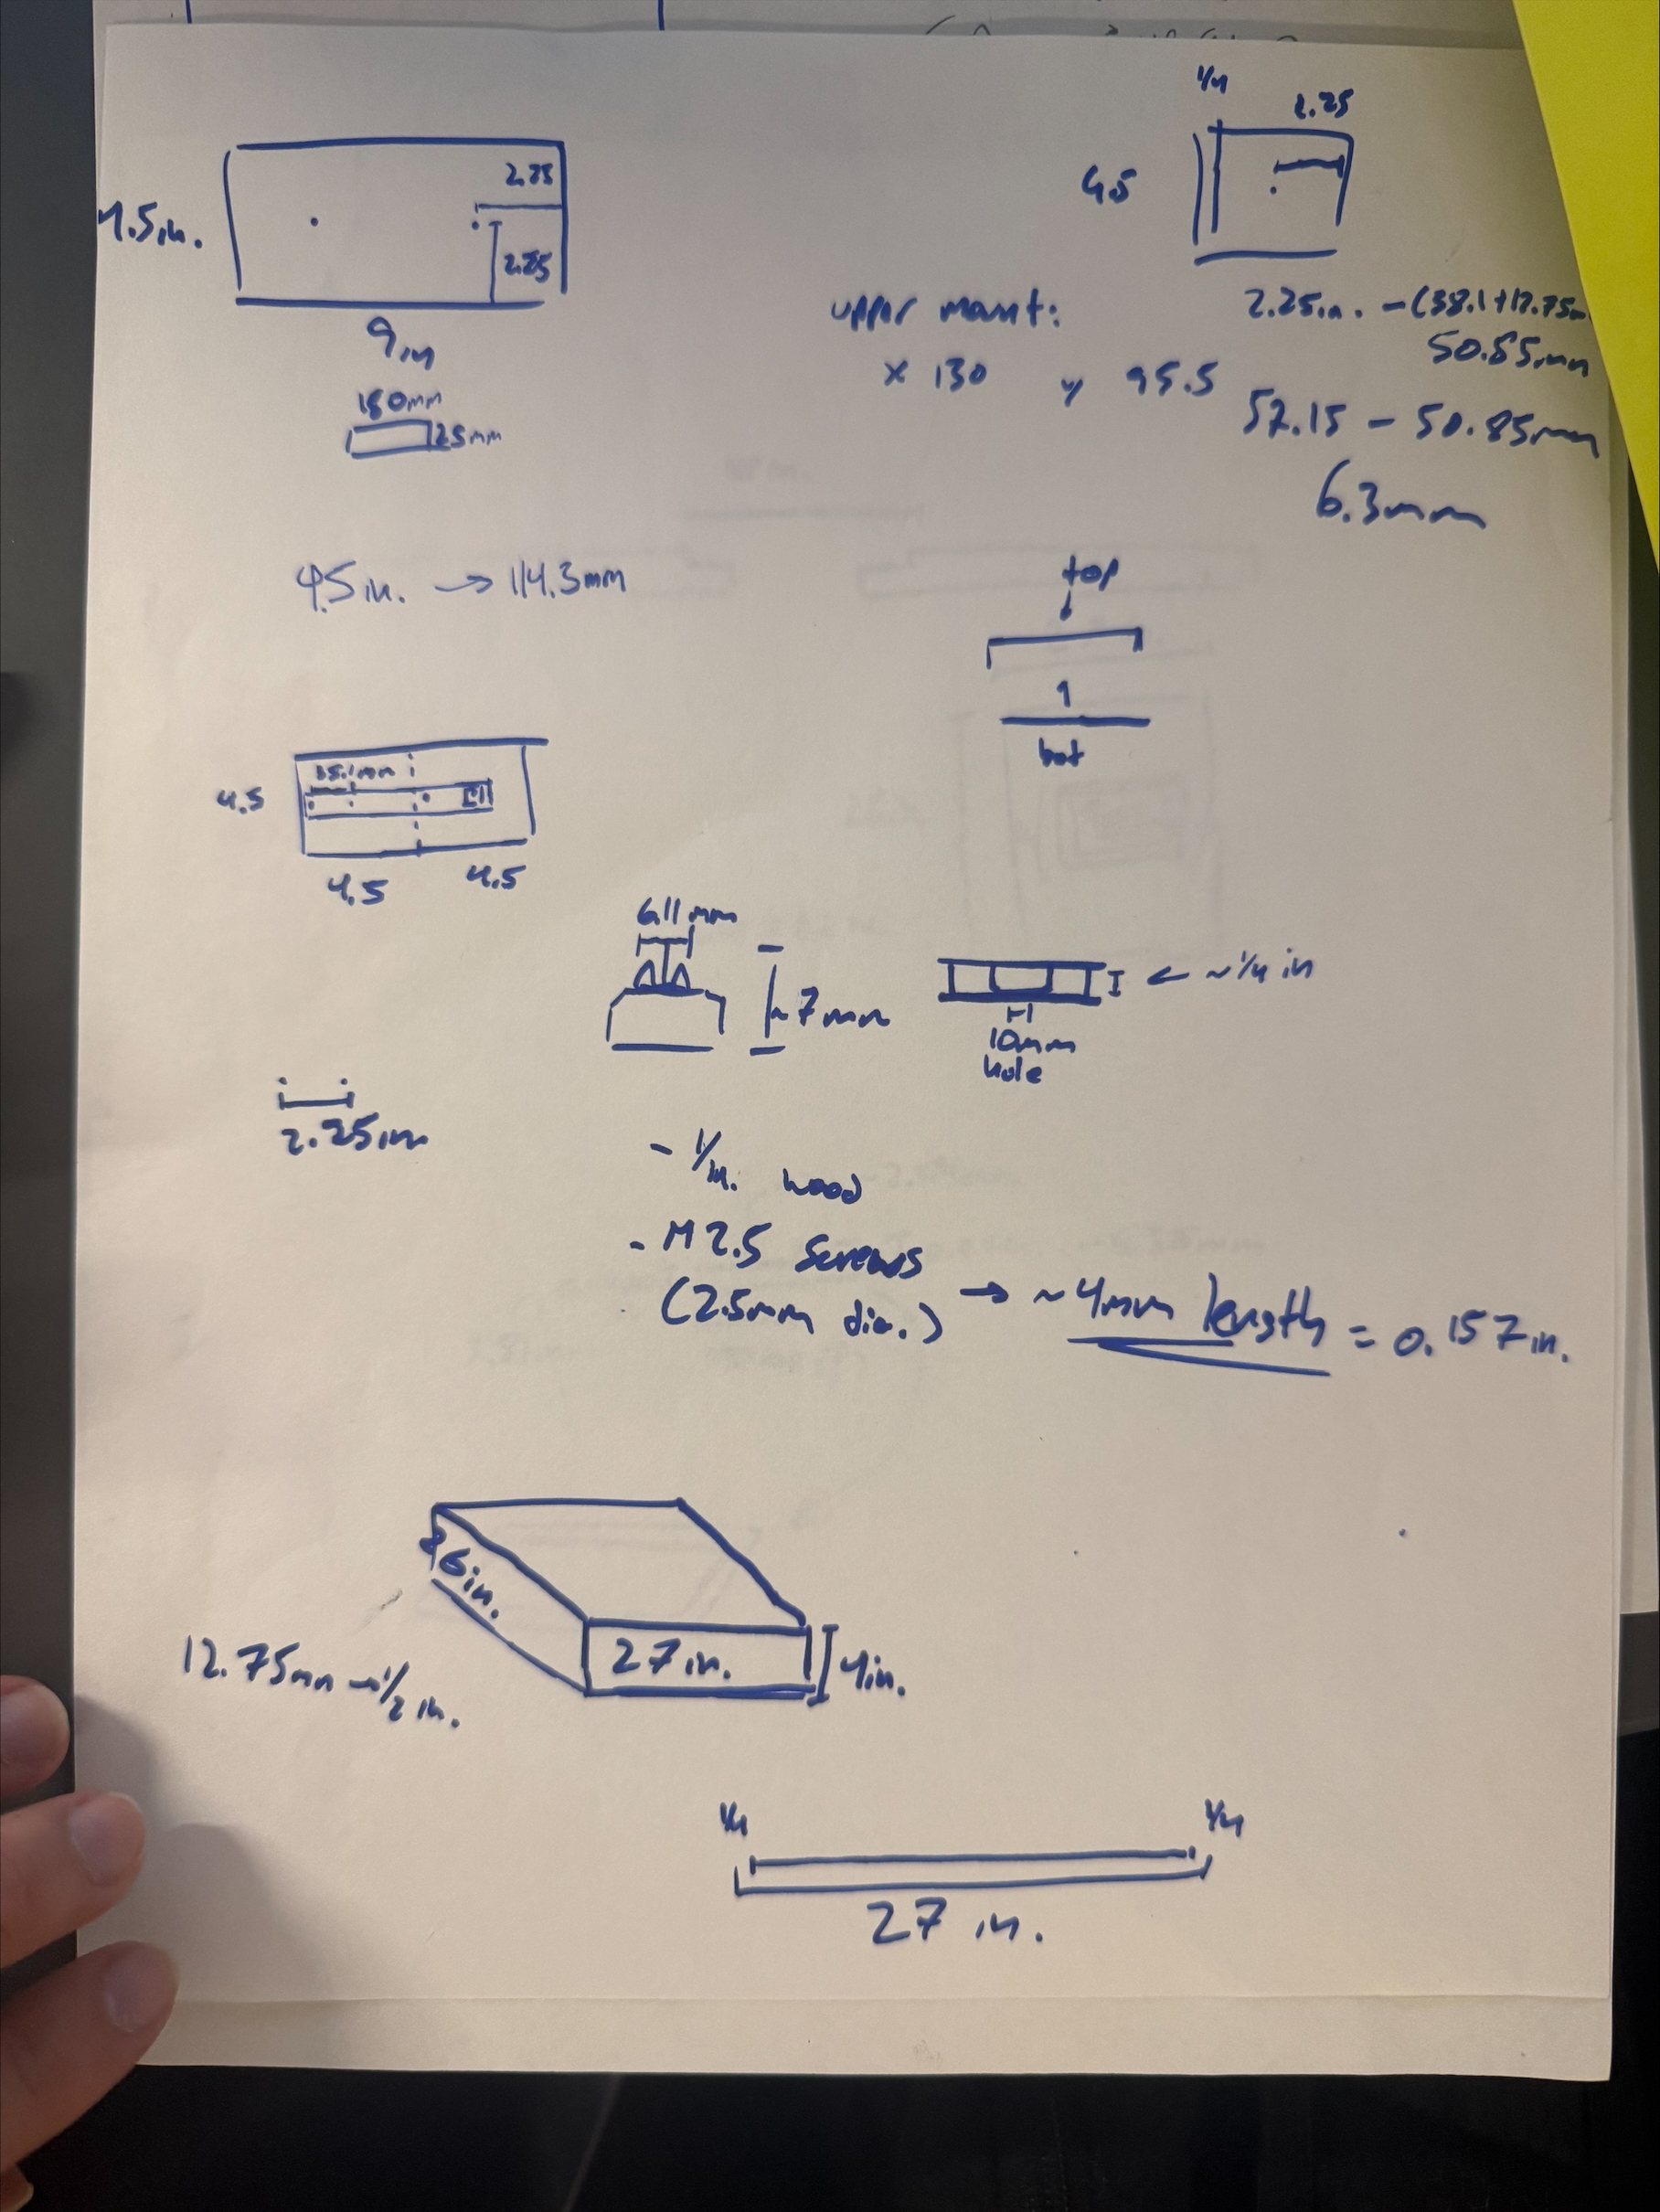 4.5in.
2.25
2.25
9in
180mm
25mm
1/4
2.25
4.5
upper mount:
x 130 y 95.5
2.25in. - (38.1+12.75m
50.85mm
57.15 - 50.85mm
6.3mm
4.5in. → 114.3mm
top
↓
↑
bot
4.5
4.5 4.5
6.11mm
~7mm
← ~1/4 in
10mm
hole
2.25in
- 1/4in. wood
- M2.5 screws
(2.5mm dia.) → ~4mm length = 0.157in.
27 in.
4in.
12.75mm → 1/2 in.
1/4 1/4
27 in.